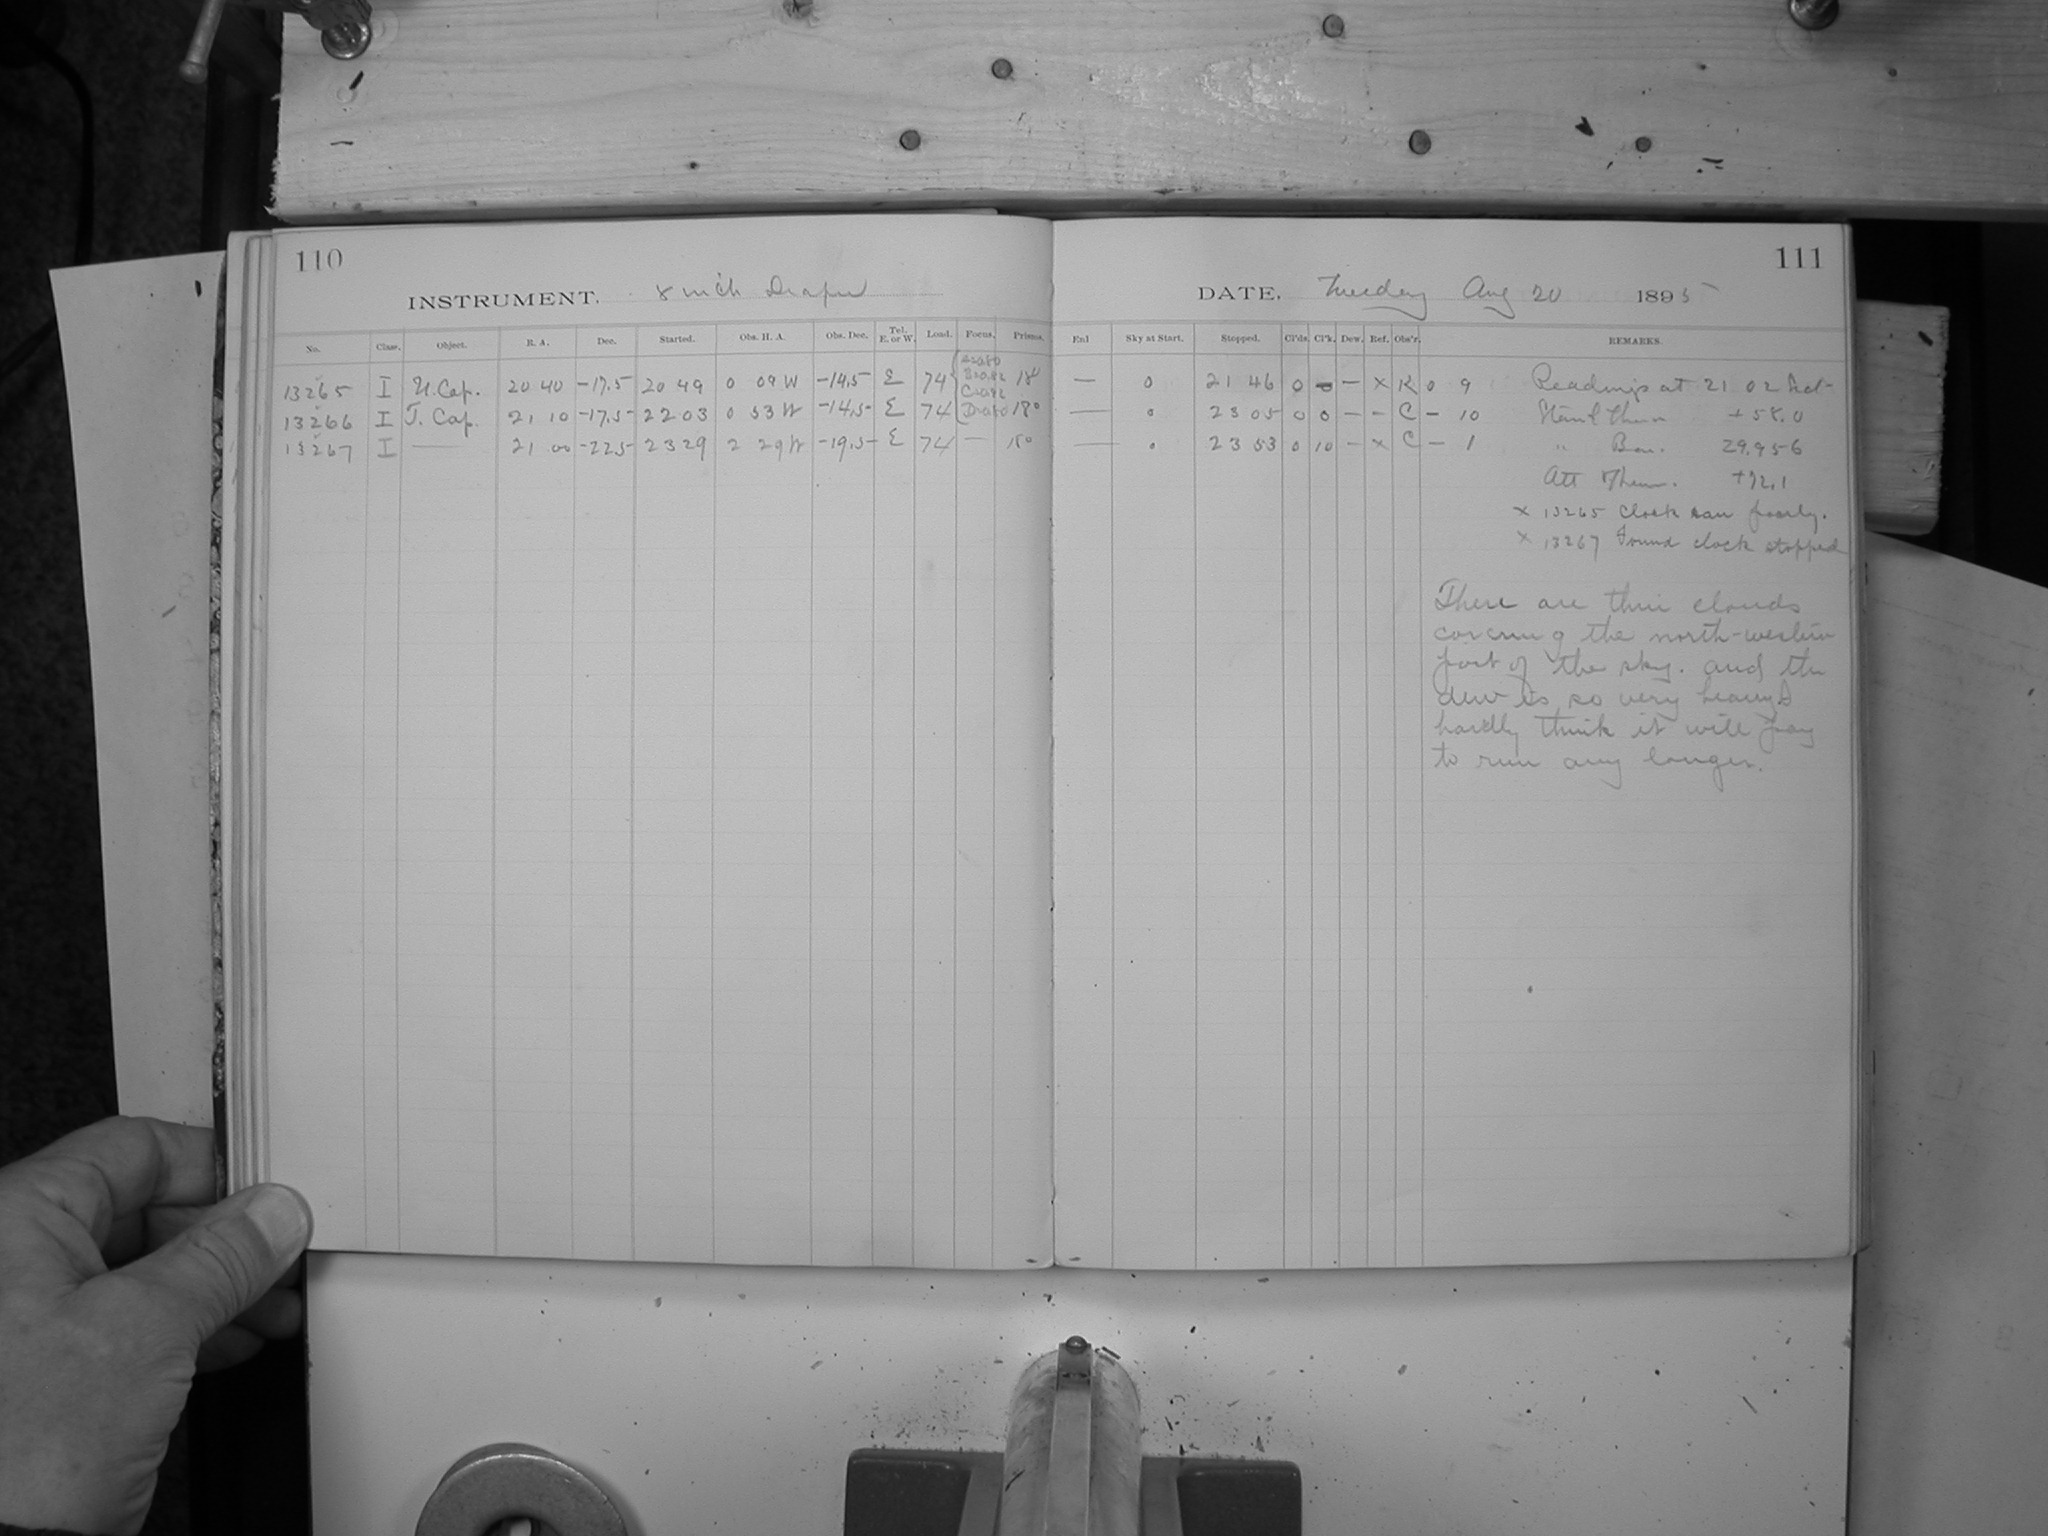 110
INSTRUMENT. 8 inch Draper
No. Class. Object. R. A. Dec. Started. Obs. H. A. Obs. Dec. Tel. E. or W. Load. Focus. Prisms.
13265 I U. Cap. 20 40 -17.5 20 49 0 09 W -14.5 E 74 18°
13266 I T. Cap. 21 10 -17.5 22 03 0 53 W -14.5 E 74 18°
13267 I — 21 00 -22.5 23 29 2 29 W -19.5 E 74 — 18°
111
DATE. Tuesday Aug 20 1895
Enl Sky at Start. Stopped. Cl'ds. Cl'k. Dew. Ref. Obs'r. REMARKS.
— 0 21 46 0 — x K 0 9 Readings at 21 02
— 0 23 05 0 0 — — C — 10 Ther +58.0
— 0 23 53 0 10 — x C — 1 " Bar. 29.956
Att Ther. +72.1
x 13265 Clock ran poorly.
x 13267 Found clock stopped
There are thin clouds
covering the north-western
part of the sky. and the
dew is so very heavy I
hardly think it will pay
to run any longer.